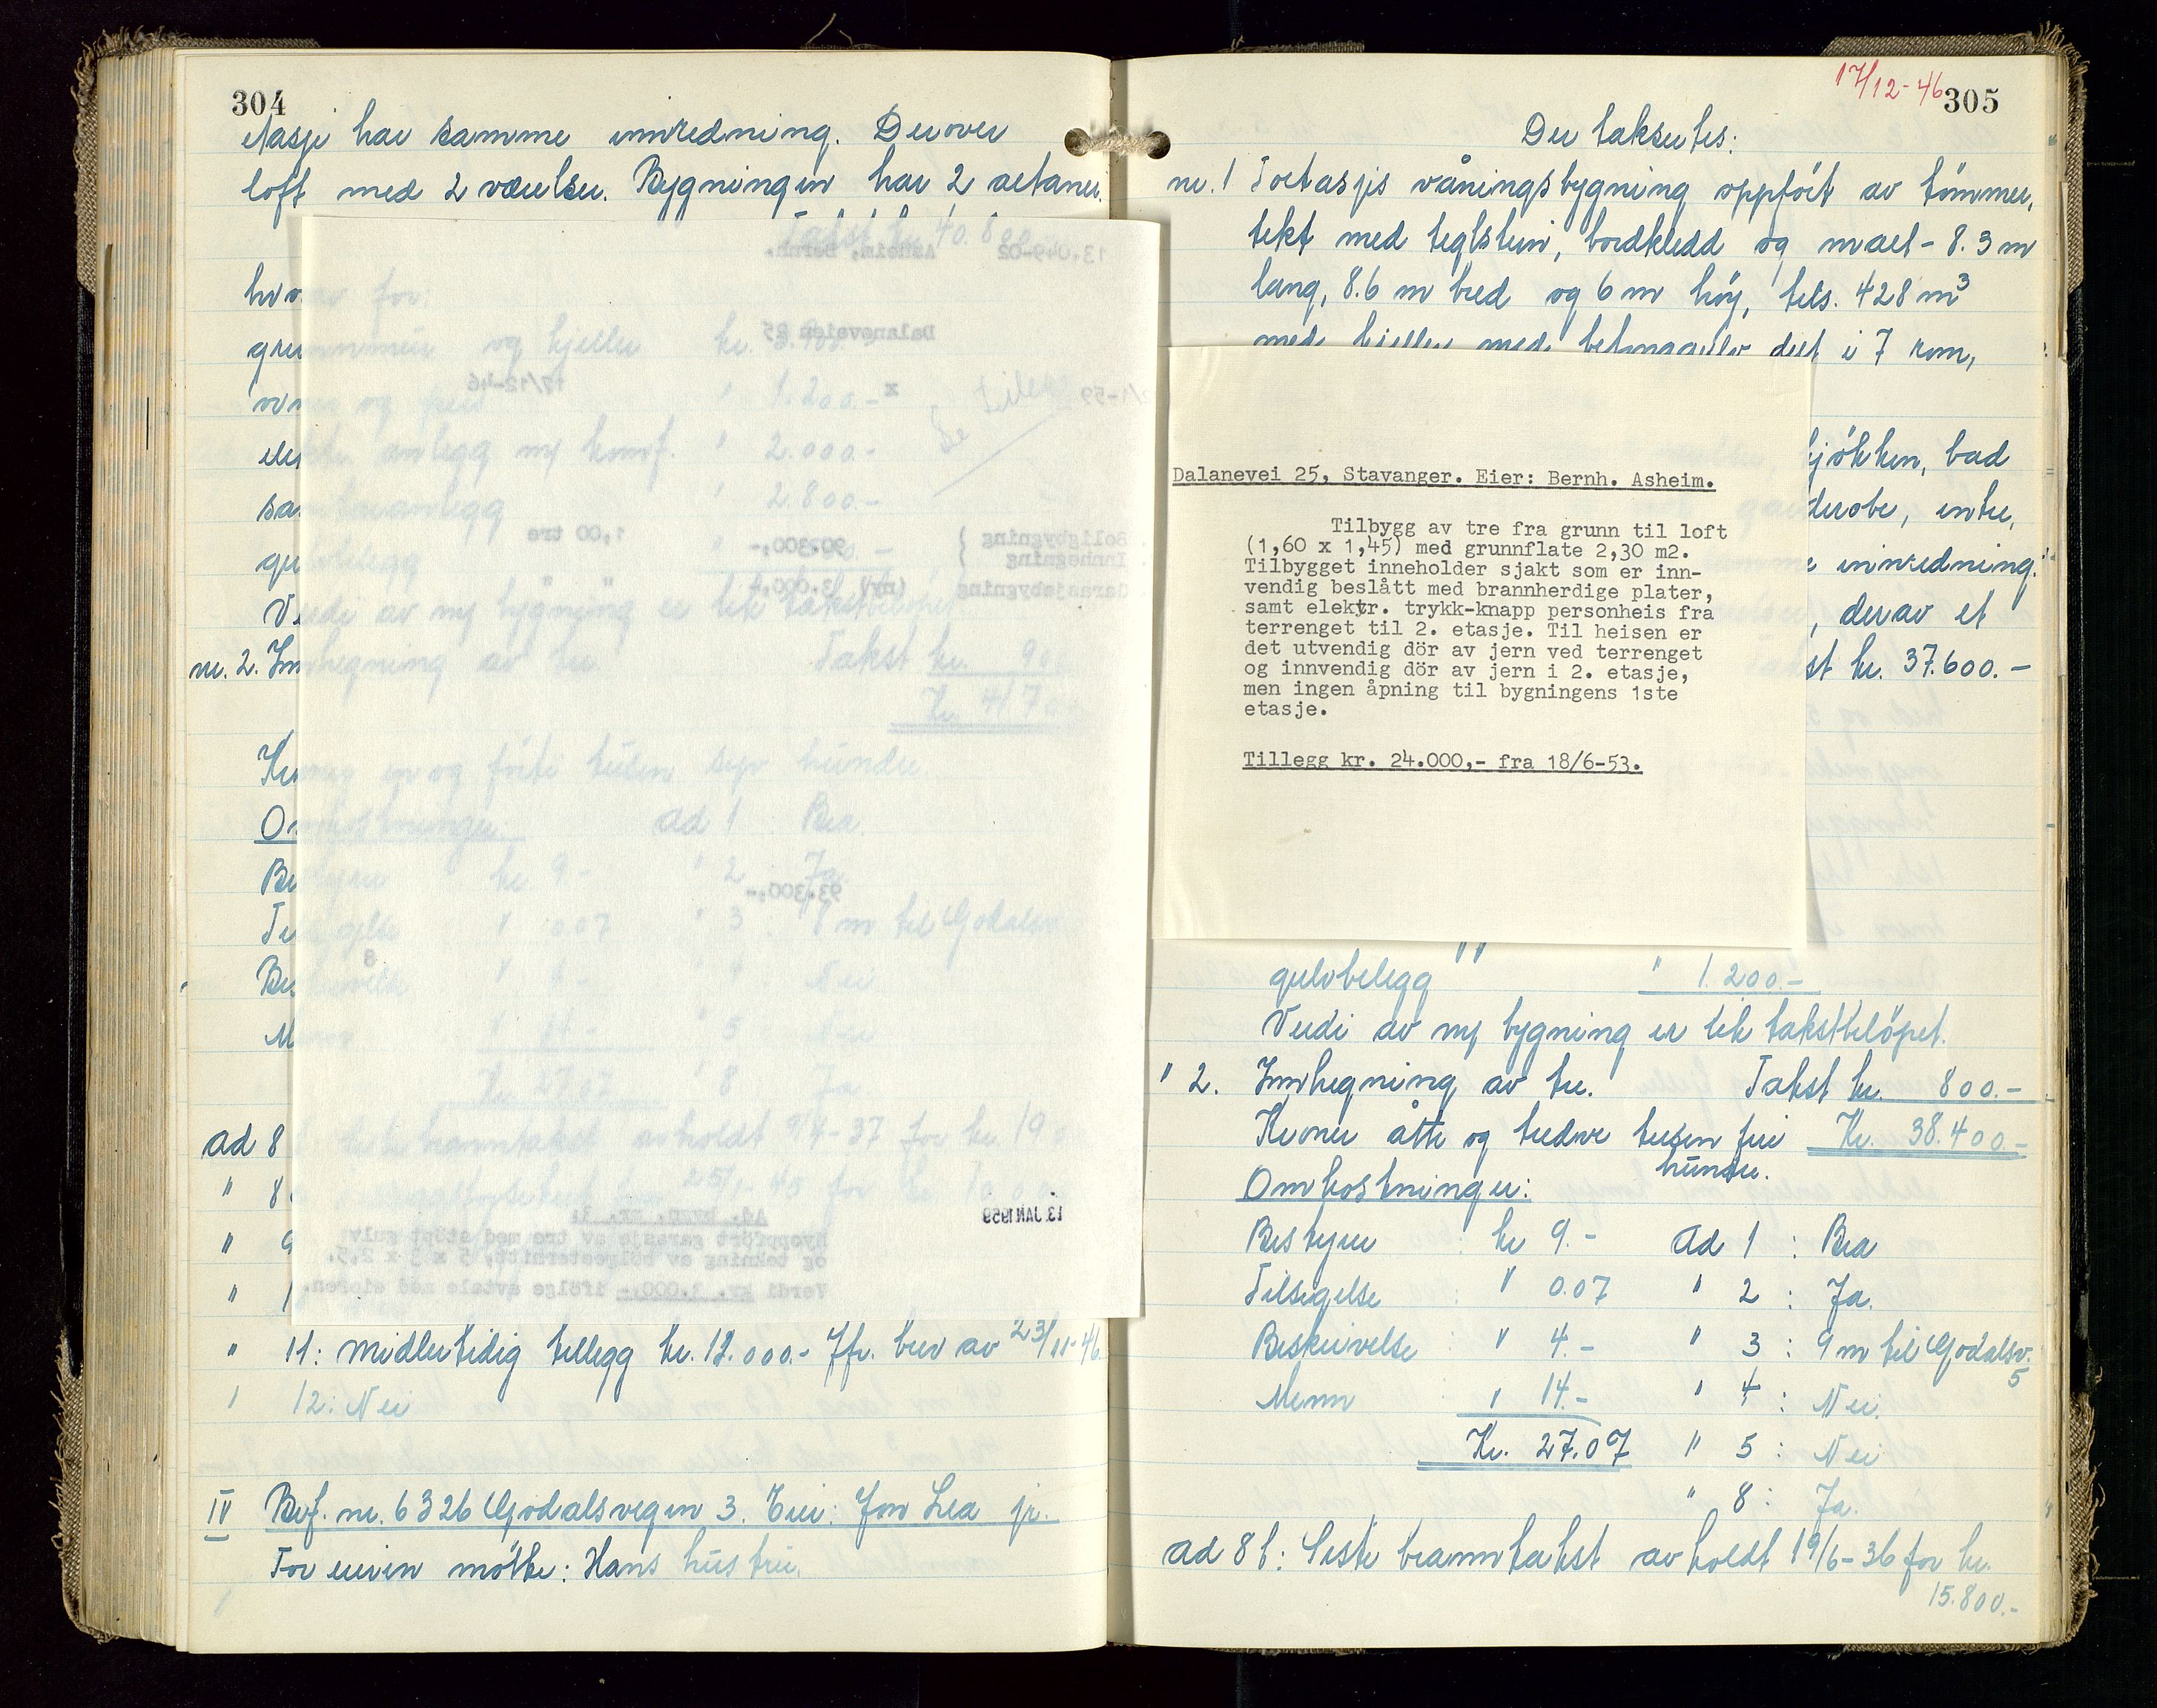 304
etasje har samme innredning. Derover
loft med 2 værelser. Bygningen har 2 altaner.
Takst kr. 40.800
hvorav for:
grunnmur og kjeller kr.
ovner og peis " 1.200.-
elektr. anlegg m/ komf. " 2.000.-
sanitæranlegg " 2.800.-
gulvbelegg
Verdi av ny bygning er lik takstbeløpet
nr. 2. Innhegning av tre. Takst kr. 900
Kr. 41700
Kroner en og førti tusen syv hundre
Omkostninger: ad 1 Bra
Bestyrer kr 9.- " 2 Ja
Tilsigelse " 0.07 " 3 : 8 m til Godalsv
Beskrivelse " 4.- " 4 Nei
Menn " 14.- " 5 Nei
Kr. 27.07 " 8 Ja
ad 8 branntakst avholdt 9/4-37 for kr. 19
" 8
" 9
" 1
" 11: Midlertidig tillegg kr. 12.000.- Jfr. brev av 23/11-46.
" 12: Nei
IV Brf. nr. 6326 Godalsvegen 3. Eier: Jon Lea jr.
For eieren møtte: Hans hustru.
13.049-02 Asheim, Bernh.
Dalaneveien 25
17/12-46
Boligbygning } 1,00 tre 90.300,-
Innhegning
Garasjebygning (ny) 3.000,-
93.300,-
8
13 JAN 1959
Ad. bygn. nr. 3:
nyoppført garasje av tre med støpt gulv
og tekning av bølgeeternitt, 5 x 3 x 2,5.
Verdi kr. 3.000,- ifølge avtale med eieren.
17/12-46 305
Der takseres:
nr. 1 Toetasjes våningsbygning oppført av tömmer,
tekt med teglstein, bordkledd og malt - 8.3 m
lang, 8.6 m bred og 6 m høy, tils. 428 m³
med kjeller med betonggulv delt i 7 rom,
kjøkken, bad
garderobe, entre,
innredning.
, derav et
Takst kr. 37.600.-
Dalanevei 25, Stavanger. Eier: Bernh. Asheim.
Tilbygg av tre fra grunn til loft
(1,60 x 1,45) med grunnflate 2,30 m2.
Tilbygget inneholder sjakt som er inn-
vendig beslått med brannherdige plater,
samt elektr. trykk-knapp personheis fra
terrenget til 2. etasje. Til heisen er
det utvendig dör av jern ved terrenget
og innvendig dör av jern i 2. etasje,
men ingen åpning til bygningens 1ste
etasje.
Tillegg kr. 24.000,- fra 18/6-53.
gulvbelegg " 1.200.-
Verdi av ny bygning er lik takstbeløpet.
" 2. Innhegning av tre. Takst kr. 800.-
Kroner åtte og tredve tusen fire Kr. 38.400.-
hundre.
Omkostninger:
Bestyrer : kr 9.- ad 1 : Bra
Tilsigelse : " 0.07 " 2 : Ja.
Beskrivelse : " 4.- " 3 : 9 m til Godalsv.
5
Menn : " 14.- " 4 : Nei.
Kr. 27.07 " 5 : Nei
" 8 : Ja.
ad 8 b: Siste branntakst avholdt 19/6-36 for kr.
15.800.-